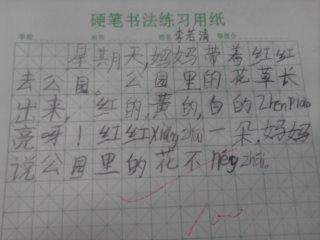 硬笔书法练习用纸
学校 班级 姓名 李若清 等级分
星期天,妈妈带着红红
去公园。公园里的花草长
出来,红的,黄的,白的Zhen Piao
亮呀!红红Xiǎng Zhāi一朵,妈妈
说公园里的花不néng Zhāi。
100